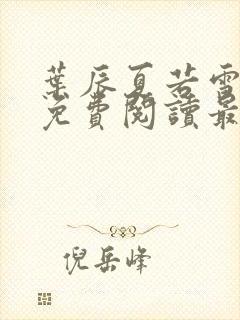 葉辰夏若雪
免費閱讀最
倪岳峰